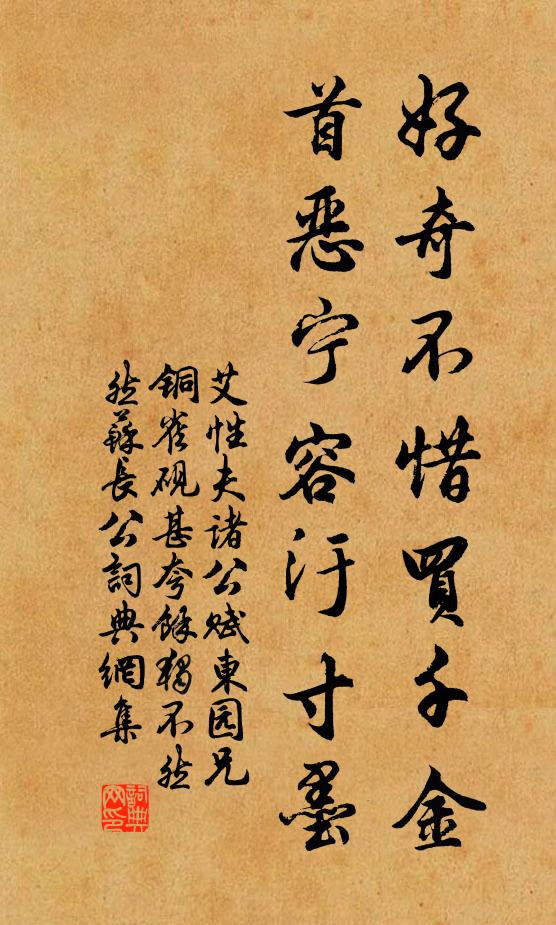 好奇不惜買千金
首恶宁容汙寸墨
艾性夫诸公赋東园兄
铜雀砚甚夸馀独不然
然蘇長公詞典網集
詞典網印